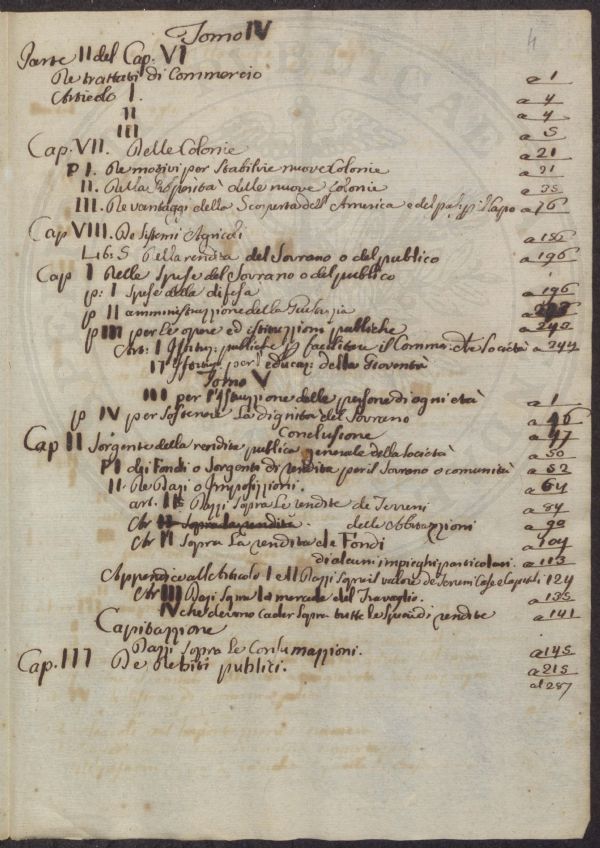 Tomo IV
4
Parte II del Cap. VI
De trattati di Commercio a 1
Articolo I. a 4
II a 4
III a 5
Cap. VII. Delle Colonie a 21
P I. De motivi per Stabilire nuove Colonie a 21
II. Della prosperità delle nuove Colonie a 35
III. De vantaggi della Scoperta dell'America e del pass. p. il Capo a 76
Cap VIII. De Sistemi Agricoli a 156
Lib: 5 Della rendita del Sovrano o del publico a 196
Cap I Delle Spese del Sovrano o del publico
p: I Spese della difesa a 196
p II amministrazione della Giustizia
p III per le opere ed istituzioni publiche a 242
Art: I Istituz: publiche p facilitare il Comm: della Società a 244
II per l'educaz: della Gioventù
Tomo V
III per l'Istruzione delle persone di ogni età a 1
p IV per Sostenere La dignità del Sovrano a 46
Conclusione a 47
Cap II Sorgente della rendita publica generale della società a 50
P I dei Fondi o Sorgenti di rendita per il Sovrano o comunità a 52
II. De Dazi o Imposizzioni. a 64
art. I Dazzi Sopra Le rendite de Terreni a 84
Ar II sopra la rendita. delle Abitazzioni a 90
Ar II Sopra La rendita de Fondi a 104
di alcuni impieghi particolari. a 113
Appendice all'Articolo I e II Dazzi Sopra il valore de Terreni Case e Capitali 124
Ar III Dazi Sopra la mercede del Travaglio. a 135
IV che devono cader Sopra tutte le specie di rendite a 141
Capitazzione
Dazzi Sopra Le Consumazzioni. a 145
Cap. III De Debiti publici. a 215
al 287